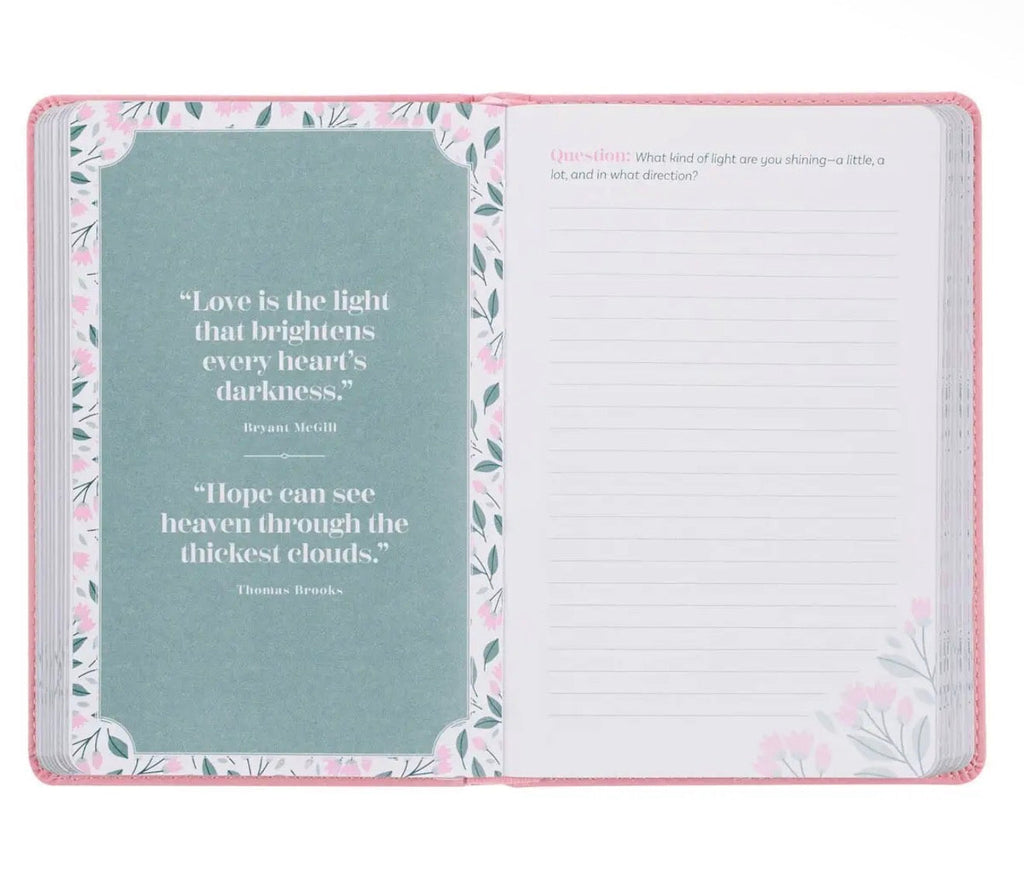 “Love is the light
that brightens
every heart’s
darkness.”
Bryant McGill
“Hope can see
heaven through the
thickest clouds.”
Thomas Brooks
Question: What kind of light are you shining—a little, a
lot, and in what direction?